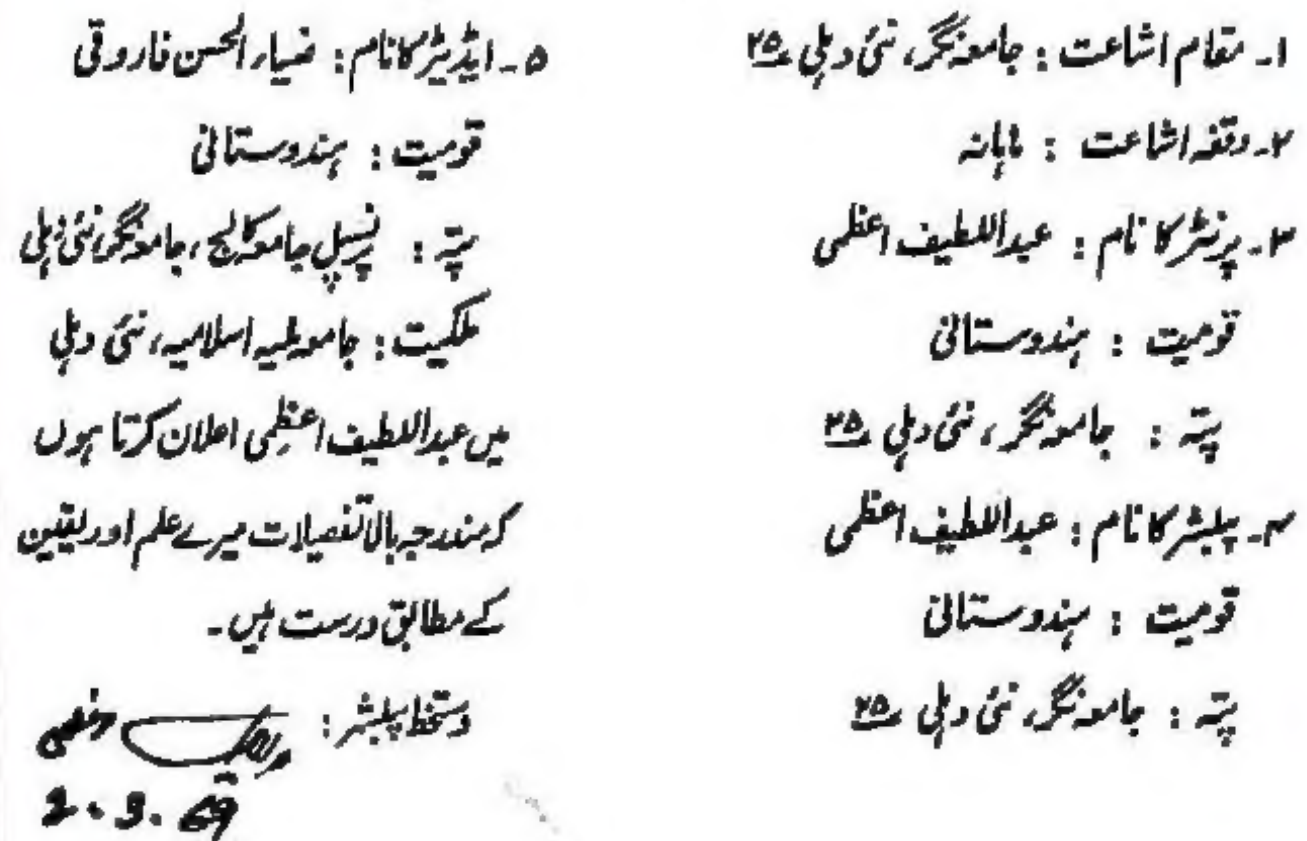 ۱۔ مقام اشاعت : جامعہ نگر، نئی دہلی ۲۵
۲۔ وقفہ اشاعت : ماہانہ
۳۔ پرنٹر کا نام : عبداللطیف اعظمی
قومیت : ہندوستانی
پتہ : جامعہ نگر، نئی دہلی ۲۵
۴۔ پبلشر کا نام : عبداللطیف اعظمی
قومیت : ہندوستانی
پتہ : جامعہ نگر، نئی دہلی ۲۵
۵۔ ایڈیٹر کا نام : ضیاء الحسن فاروقی
قومیت : ہندوستانی
پتہ : پرنسپل جامعہ کالج، جامعہ نگر، نئی دہلی
ملکیت : جامعہ ملیہ اسلامیہ، نئی دہلی
میں عبداللطیف اعظمی اعلان کرتا ہوں
کہ مندرجہ بالا تفصیلات میرے علم اور یقین
کے مطابق درست ہیں۔
دستخط پبلشر : عبداللطیف اعظمی
2.3.69